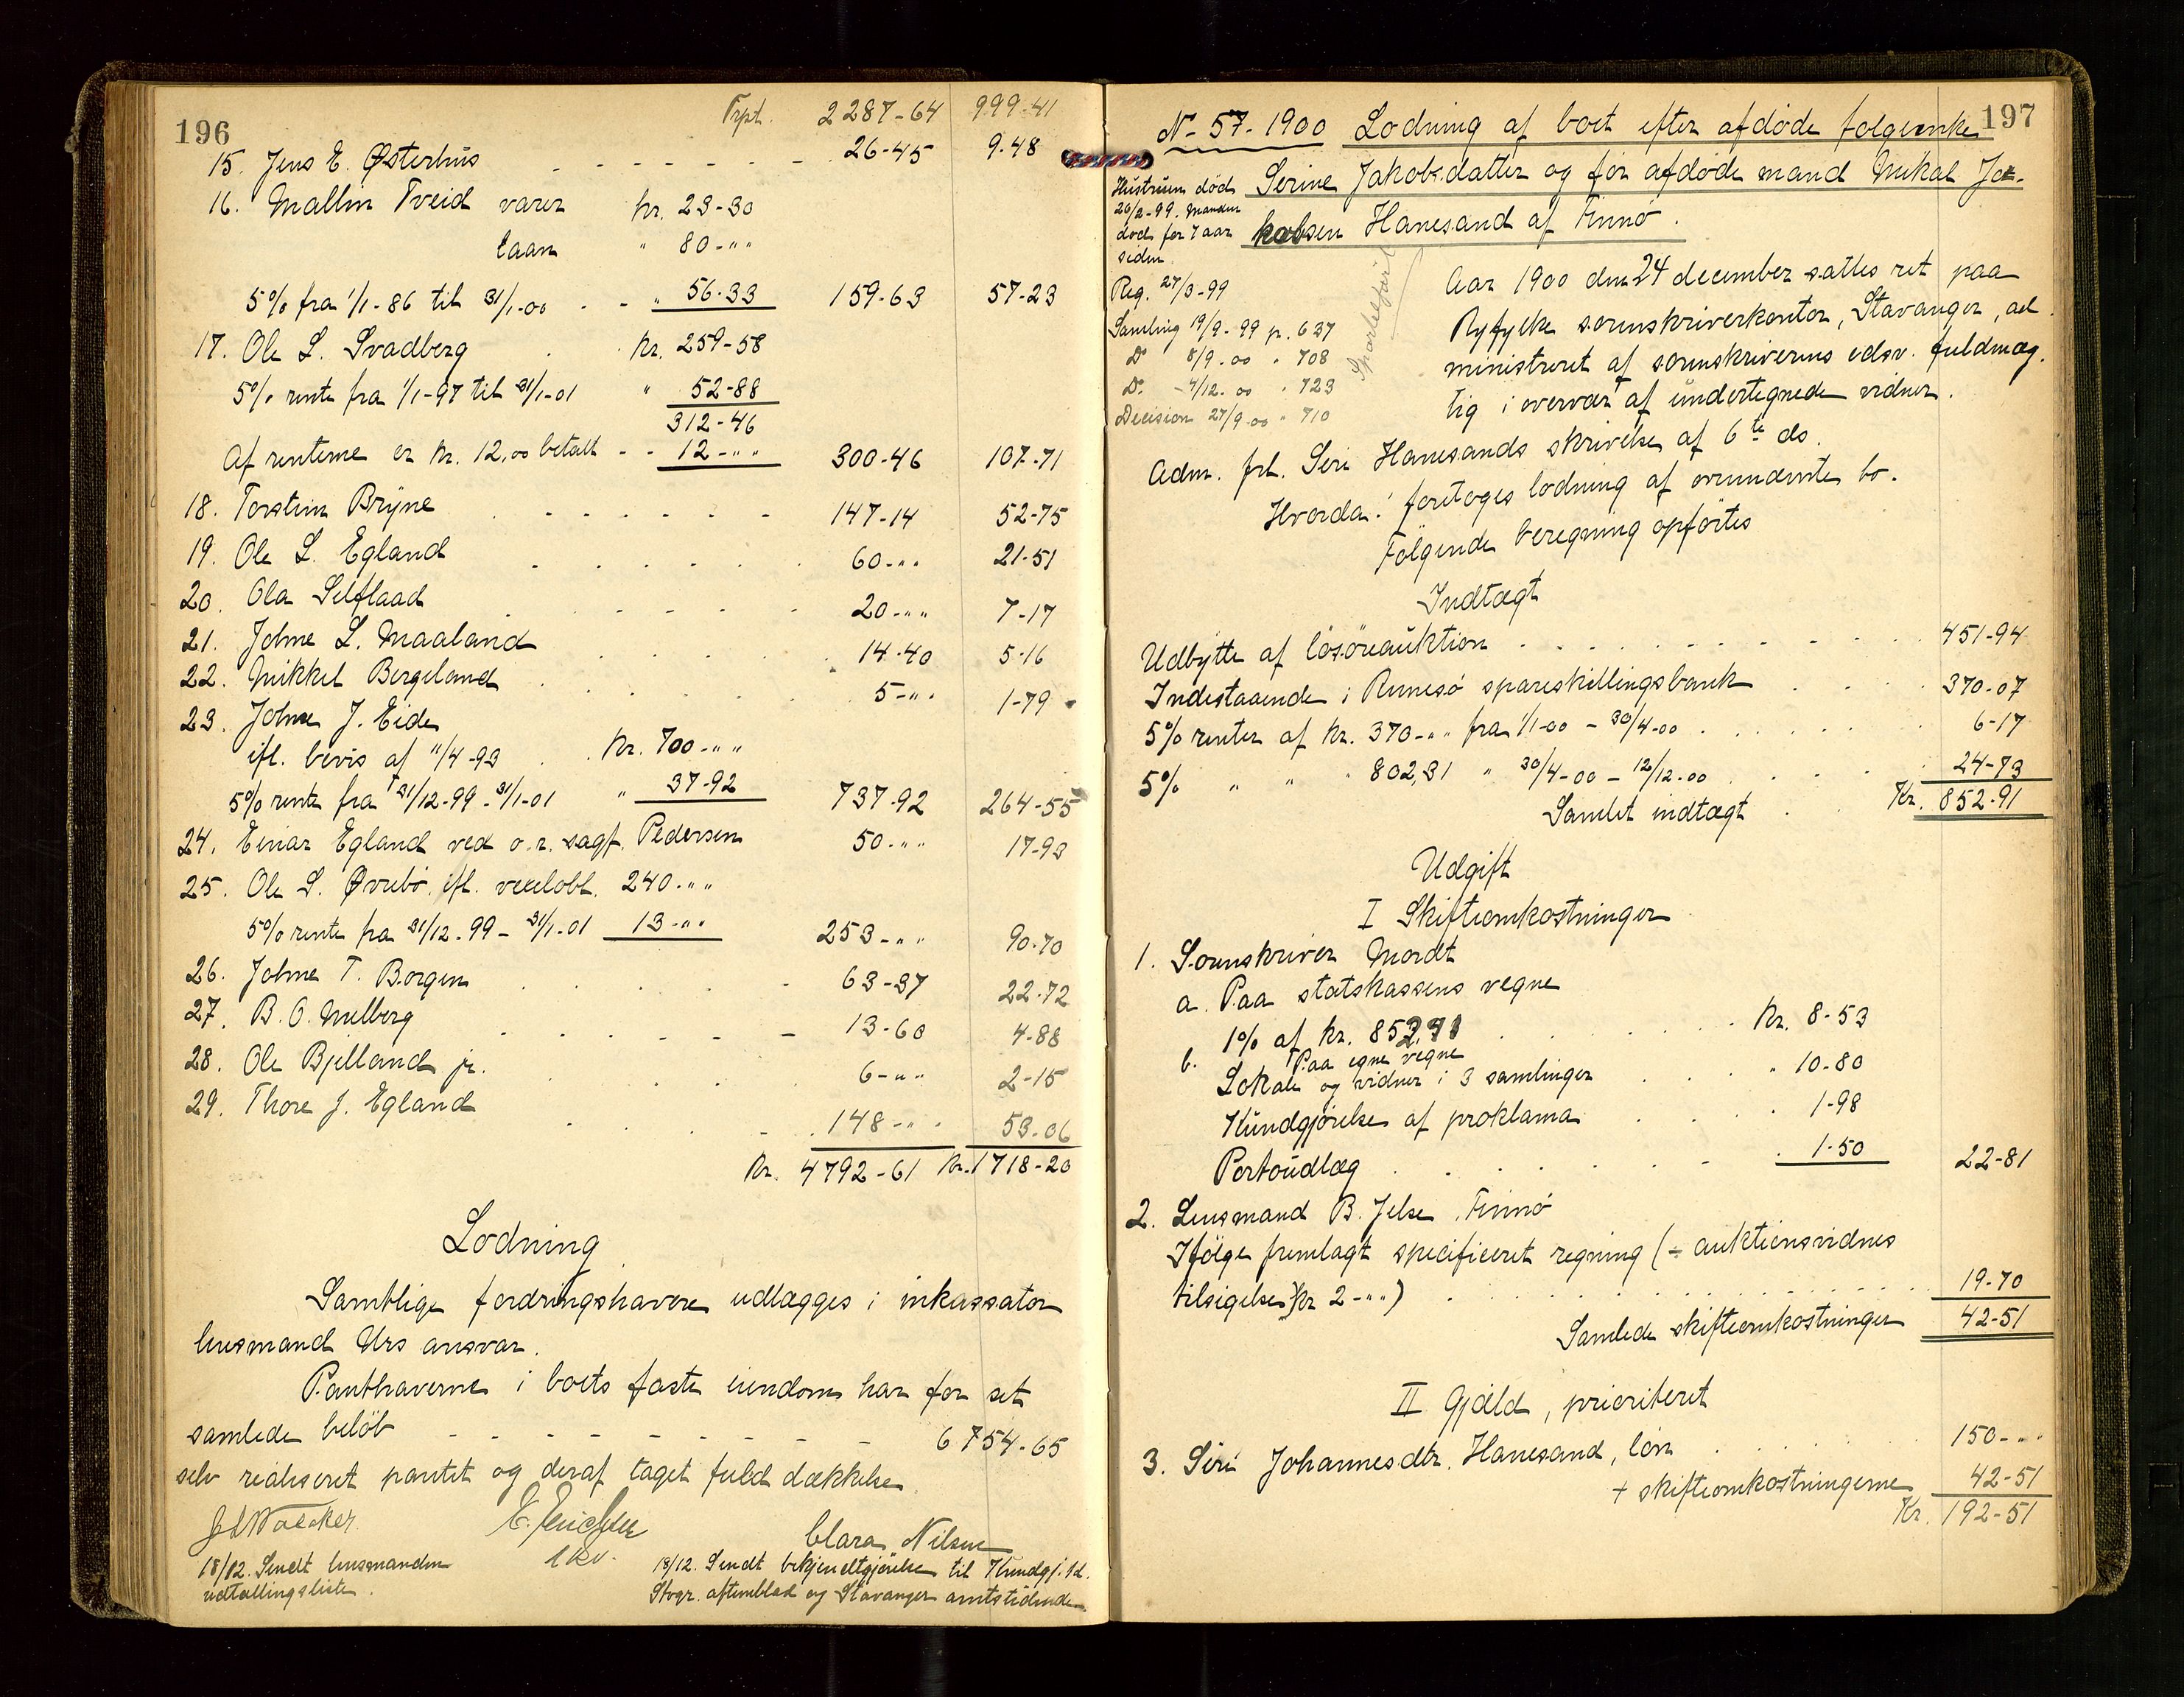 196
Trpt. 2287-64 999-41
15. Jens E. Østerhus - - - - - - 26-45 9.48
16. Mallin Tveid varer kr. 23-30
laan " 80-""
5% fra 1/1-86 til 31/1-00 - - " 56.33 159-63 57-23
17. Ole L. Svadberg kr. 259-58
5% rente fra 1/1-97 til 31/1-01 " 52-88
312-46
Af renterne er kr. 12,00 betalt - - 12-"" 300-46 107-71
18. Torstein Bryne - - - - - - 147-14 52-75
19. Ole L. Egland . . . . . . 60-"" 21-51
20. Ola Selflaad - - - - - 20-"" 7-17
21. Johne L. Maaland . . . . . 14-40 5-16
22. Mikkel Bergeland . . . . . 5-"" 1-79
23. Johne J. Eide
ifl. bevis af 11/4-93 . . kr. 700-""
5% rente fra 31/12-99 - 31/1-01 " 37-92 737-92 264-55
24. Einar Egland ved o.r. sagf. Pedersen 50-"" 17-93
25. Ole S. Øvrebö, ifl. vexelobl. 240-""
5% rente fra 31/12-99 - 31/1-01 13-"" 253-"" 90-70
26. Johne T. Borgen . . . . . 63-37 22-72
27. B. O. Melberg - - - - - 13-60 4-88
28. Ole Bjelland jr. . . . . 6-"" 2-15
29. Thore J. Egland . . . . 148-"" 53-06
Kr. 4792-61 Kr. 1718-20
Lodning
Samtlige fordringshavere udlægges i inkassator
lensmand Urs ansvar.
Panthaverne i boets faste eiendom har for sit
samlede beløb - - - - - - - - 6754-65
selv realiseret pantet og deraf taget fuld dækkelse.
E. Erichsen Clara Nilsen
ekv.
18/12. Sendt lensmanden
udtællingsliste.
18/12. Sendt bekjendtgjørelse til Kundgj. td.
Stvgr. aftenblad og Stavanger amtstidende.
197
No 57-1900 Lodning af boet efter afdøde folgeenke
Serine Jakobsdatter og før afdøde mand Mikal Ja-
kobsen Hanesand af Finnö.
Hustruen död
26/2-99. Manden
död for 7 aar
siden.
Reg. 27/3-99
Samling 19/9-99 p. 637
Do 8/9.00 " 708
Do -4/12.00 " 723
Decision 27/9.00 " 710
Aar 1900 den 24 december sattes ret paa
Ryfylke sorenskriverkontor, Stavanger, ad
ministreret af sorenskriverens edsv. fuldmæg.
tig i overvær af undertegnede vidner.
Adm. frl. Seri Hanesands skrivelse af 6te ds.
Hvorda: foretoges lodning af ovennævnte bo.
Følgende beregning opførtes
Indtægt
Udbytte af løsøreauktion . . . . . . . . . 451-94
Indestaaende i Rennesö spareskillingsbank . . . . 370-07
5% renter af kr. 370-"" fra 1/1-00 - 30/4-00 . . . . . . 6-17
5% " " " 802,31 " 30/4-00 - 12/12-00 . . . . . 24-73
Samlet indtægt . . Kr. 852-91
Udgift
I Skifteomkostninger
1. Sorenskriver Mordt
a. Paa statskassens vegne
1% af kr. 852,91 . . . . . . Kr. 8-53
b. Paa egne vegne
Lokale og vidner i 3 samlinger . . . . " 10-80
Kundgjørelse af proklama . . . . 1-98
Portoudlæg . . . . . . - . 1-50 22-81
2. Lensmand B. Jelse, Finnö
Ifølge fremlagt specificeret regning (÷ auktionsvidnes
tilsigelse kr 2-"") . . . . . . . . . . . 19-70
Samlede skifteomkostninger 42-51
II Gjæld, prioriteret
3. Siri Johannesdtr. Hanesand, løn . . . . 150-""
+ skifteomkostningerne 42-51
Kr. 192-51